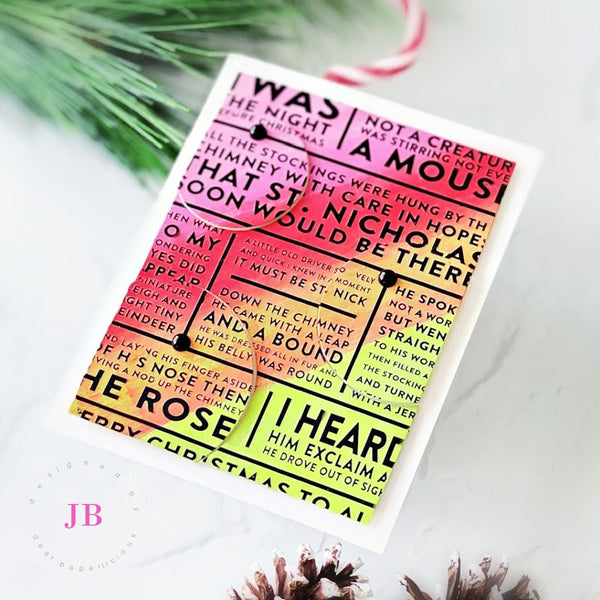 I WAS
THE NIGHT
BEFORE CHRISTMAS
NOT A CREATUR
WAS STIRRING NOT EVE
A MOUSE
ALL THE STOCKINGS WERE HUNG BY TH
CHIMNEY WITH CARE IN HOPES
THAT ST. NICHOLAS
SOON WOULD BE THERE
HEN WHAT
O MY
ONDERING
YES DID
APPEAR
MINIATURE
EIGH AND
GHT TINY
EINDEER
A LITTLE OLD DRIVER SO
VELY
AND QUICK I KNEW IN A MOMENT
IT MUST BE ST. NICK
DOWN THE CHIMNEY
HE CAME WITH A LEAP
AND A BOUND
HE WAS DRESSED ALL IN FUR AND
HIS BELLY WAS ROUND
HE SPOK
NOT A WOR
BUT WEN
STRAIGH
TO HIS WOR
THEN FILLED A
THE STOCKING
AND TURNE
WITH A JER
ND LAYING HIS FINGER ASIDE
OF HIS NOSE THEN
VING A NOD UP THE CHIMNEY
HE ROSE
I HEARD
HIM EXCLAIM A
HE DROVE OUT OF SIGH
MERRY CHRISTMAS TO AL
designed by
JB
dear paperlicious